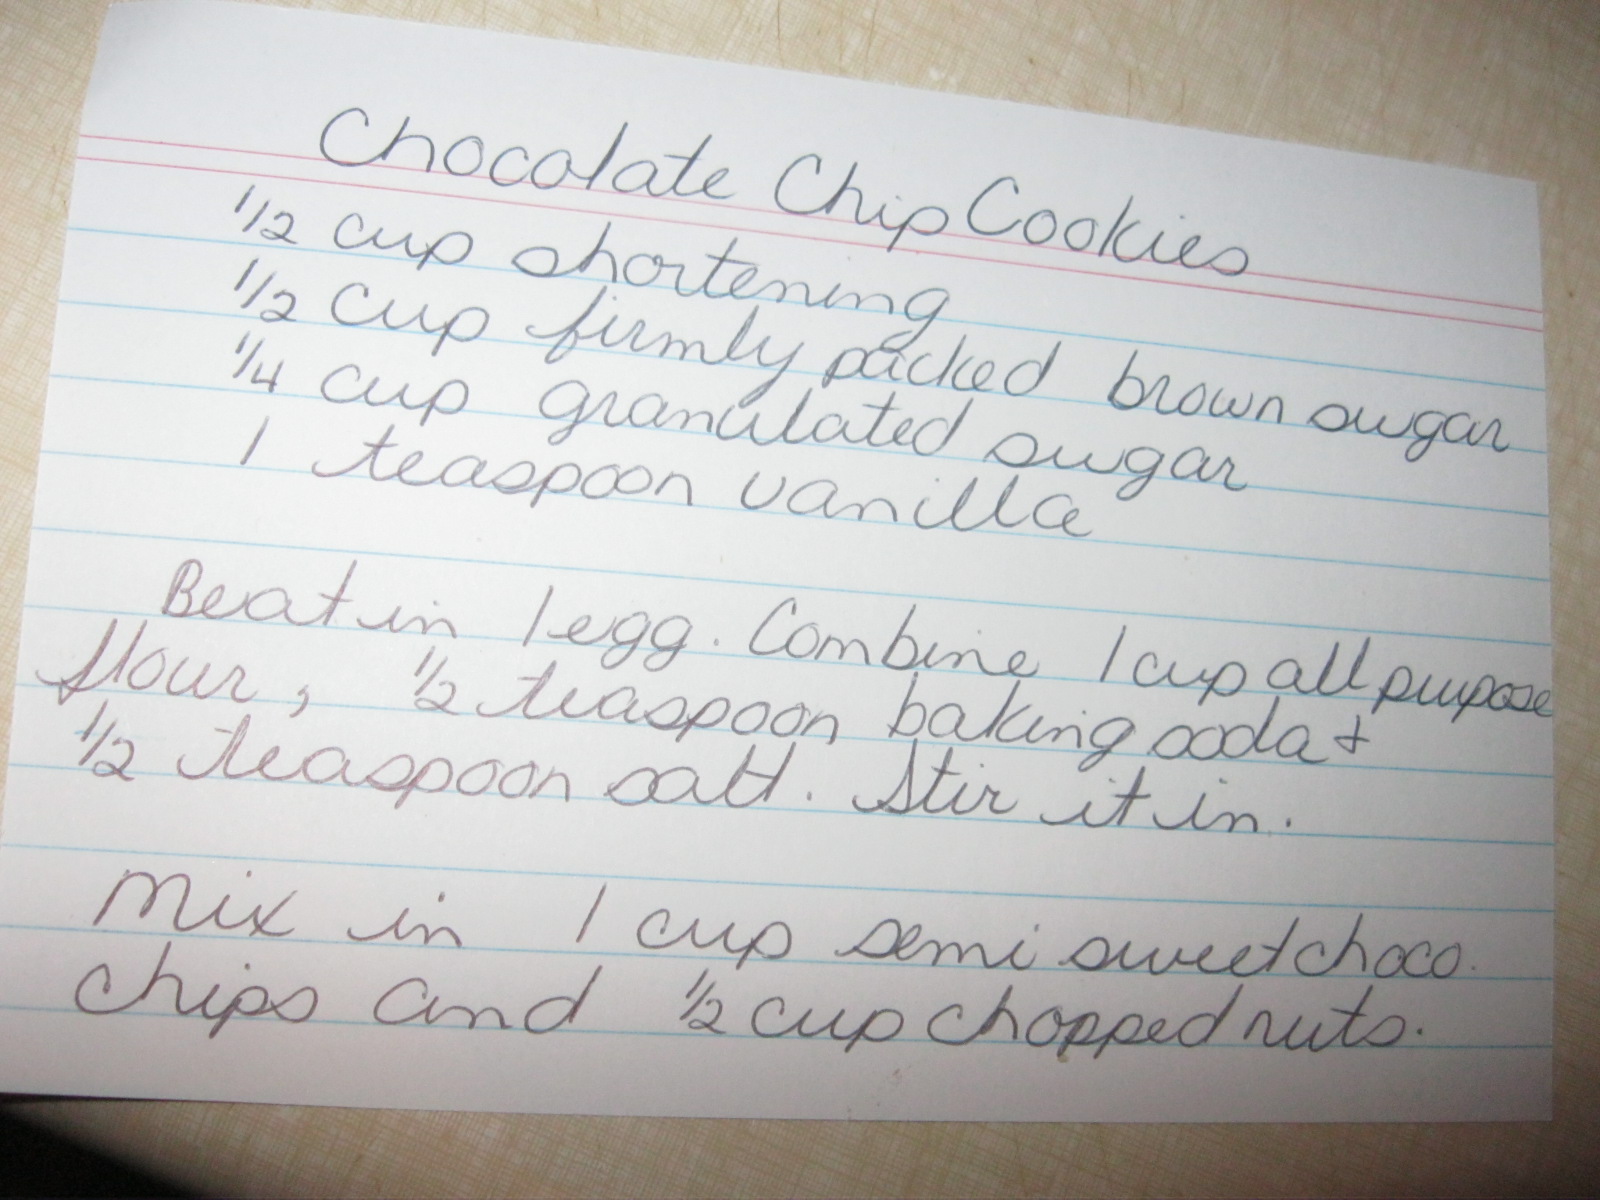 Chocolate Chip Cookies
1/2 cup shortening
1/2 cup firmly packed brown sugar
1/4 cup granulated sugar
1 teaspoon vanilla
Beat in 1 egg. Combine 1 cup all purpose
flour, 1/2 teaspoon baking soda +
1/2 teaspoon salt. Stir it in.
Mix in 1 cup semi sweet choco.
chips and 1/2 cup chopped nuts.